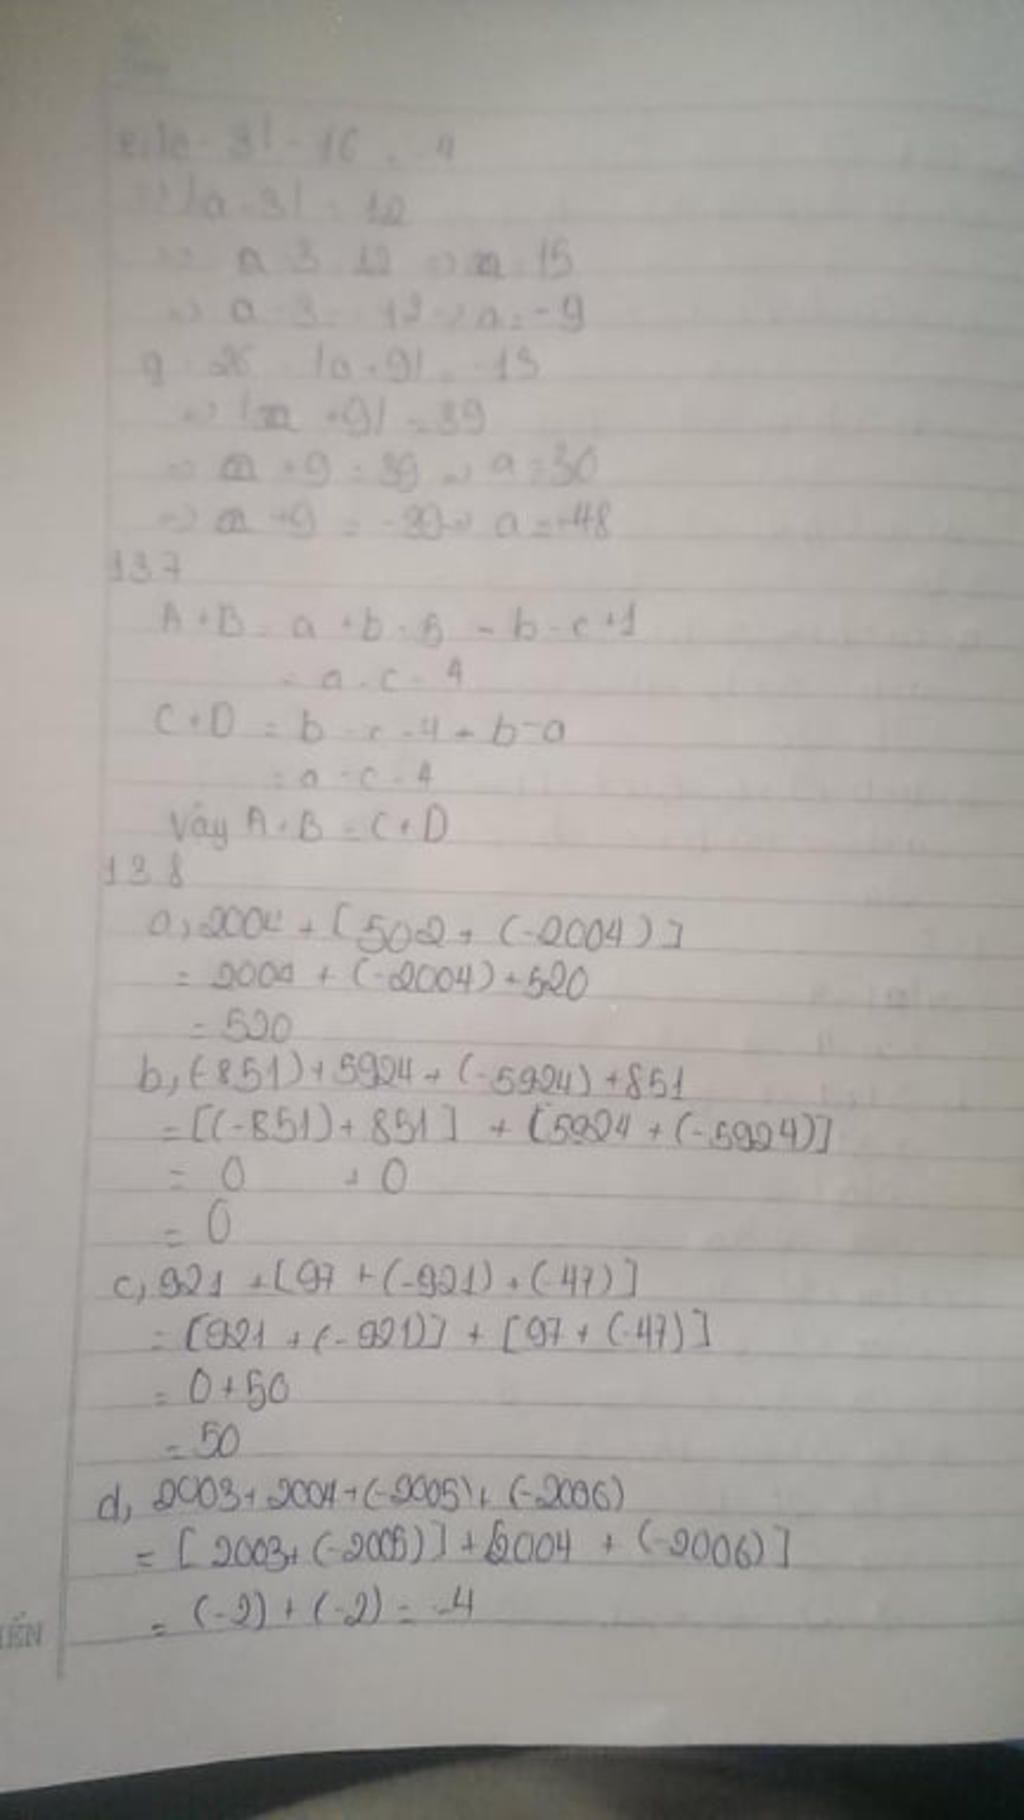 |a - 3| = 12
a = -9
|a + 9| = -13
+ 9| = 39
+ 9 = 39 => a = 30
+ 9 = -39 => a = -48
137
A + B = a + b - 5 - b - c + 1
= a - c - 4
C + D = b - c - 4 - b - a
= a - c - 4
Vậy A + B = C + D
138
a, 2004 + [502 + (-2004)]
= 2004 + (-2004) + 520
= 520
b, (-851) + 5924 + (-5924) + 851
= [(-851) + 851] + [5924 + (-5924)]
= 0 + 0
= 0
c, 921 + [97 + (-921) + (-47)]
= [921 + (-921)] + [97 + (-47)]
= 0 + 50
= 50
d, 2003 + 2004 + (-2005) + (-2006)
= [2003 + (-2005)] + [2004 + (-2006)]
= (-2) + (-2) = -4